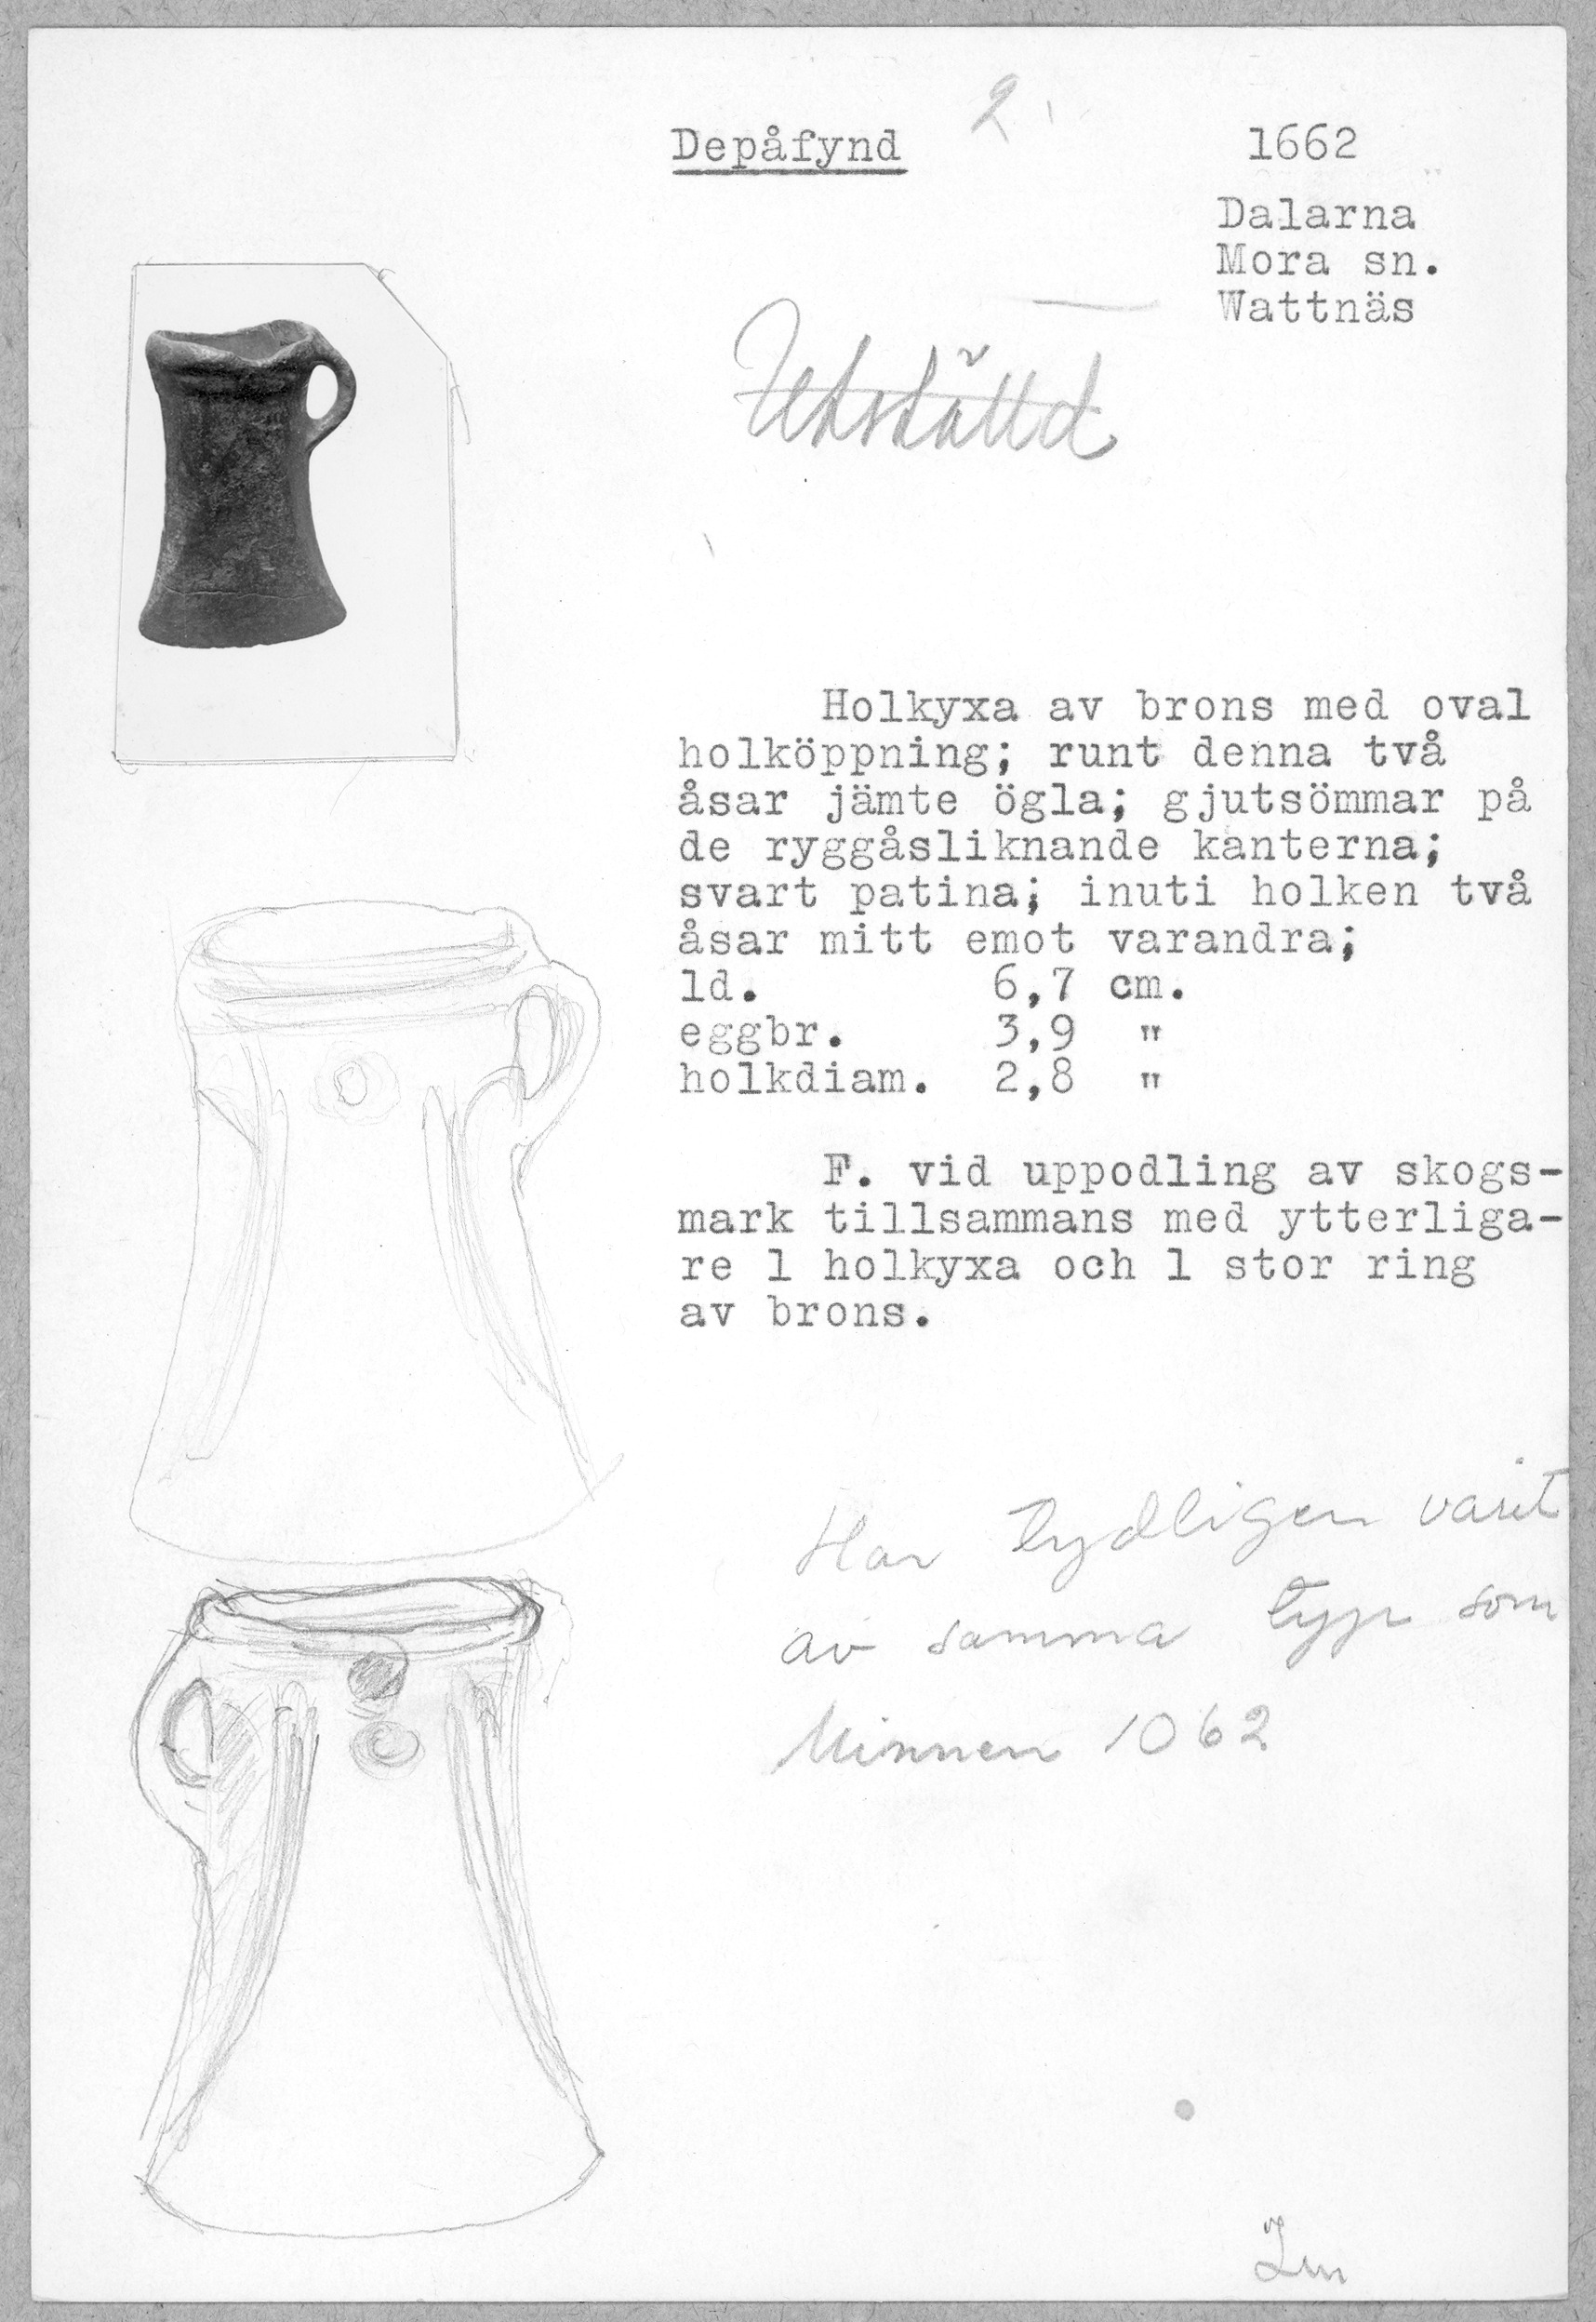 Depåfynd 2
1662
Dalarna
Mora sn.
Wattnäs
Utställd
Holkyxa av brons med oval
holköppning; runt denna två
åsar jämte ögla; gjutsömmar på
de ryggåsliknande kanterna;
svart patina; inuti holken två
åsar mitt emot varandra;
ld. 6,7 cm.
eggbr. 3,9 "
holkdiam. 2,8 "
F. vid uppodling av skogs-
mark tillsammans med ytterliga-
re 1 holkyxa och 1 stor ring
av brons.
Har tydligen varit
av samma typ som
Minnen 1062